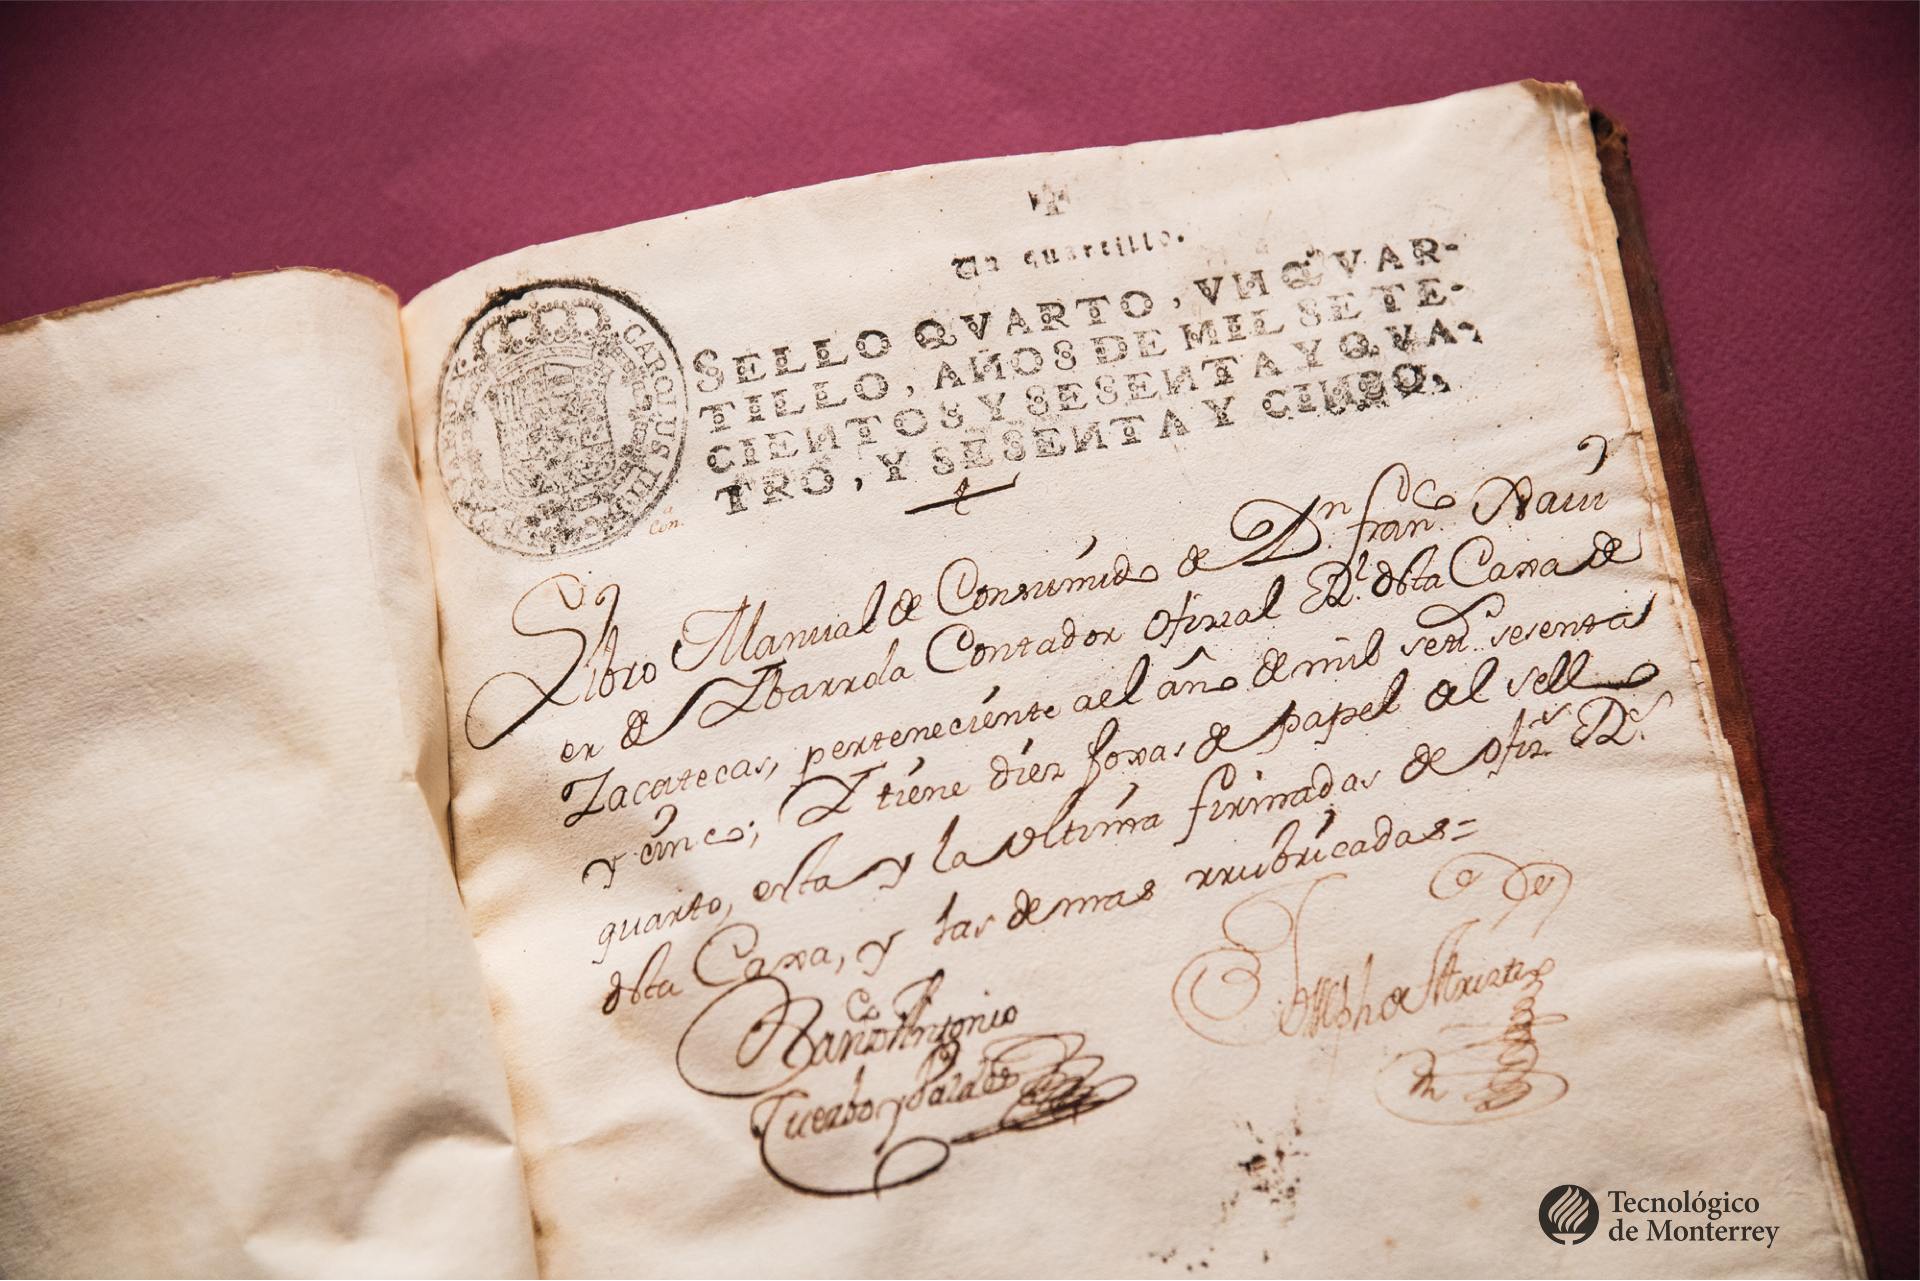 Un quartillo.
SELLO QVARTO, VN QVAR-
TILLO, AÑOS DE MIL SETE-
CIENTOS Y SESENTA Y QVA-
TRO, Y SESENTA Y CINCO.
CAROLUS III
Libro Manual de Consumido de Dn. franco. Xavi
er de Ibarrola Contador ofizial Rl. desta Caxa de
Zacatecas, perteneciente a el año de mil sets. sesenta
y cinco; Y tiene diez foxas de papel del sello
quarto, esta y la ultima firmadas de ofizs. Rs.
desta Caxa, y las demas rrubricadas=
Antonio
Tecnológico
de Monterrey